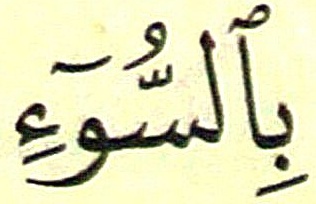 بِٱلسُّوٓءِ